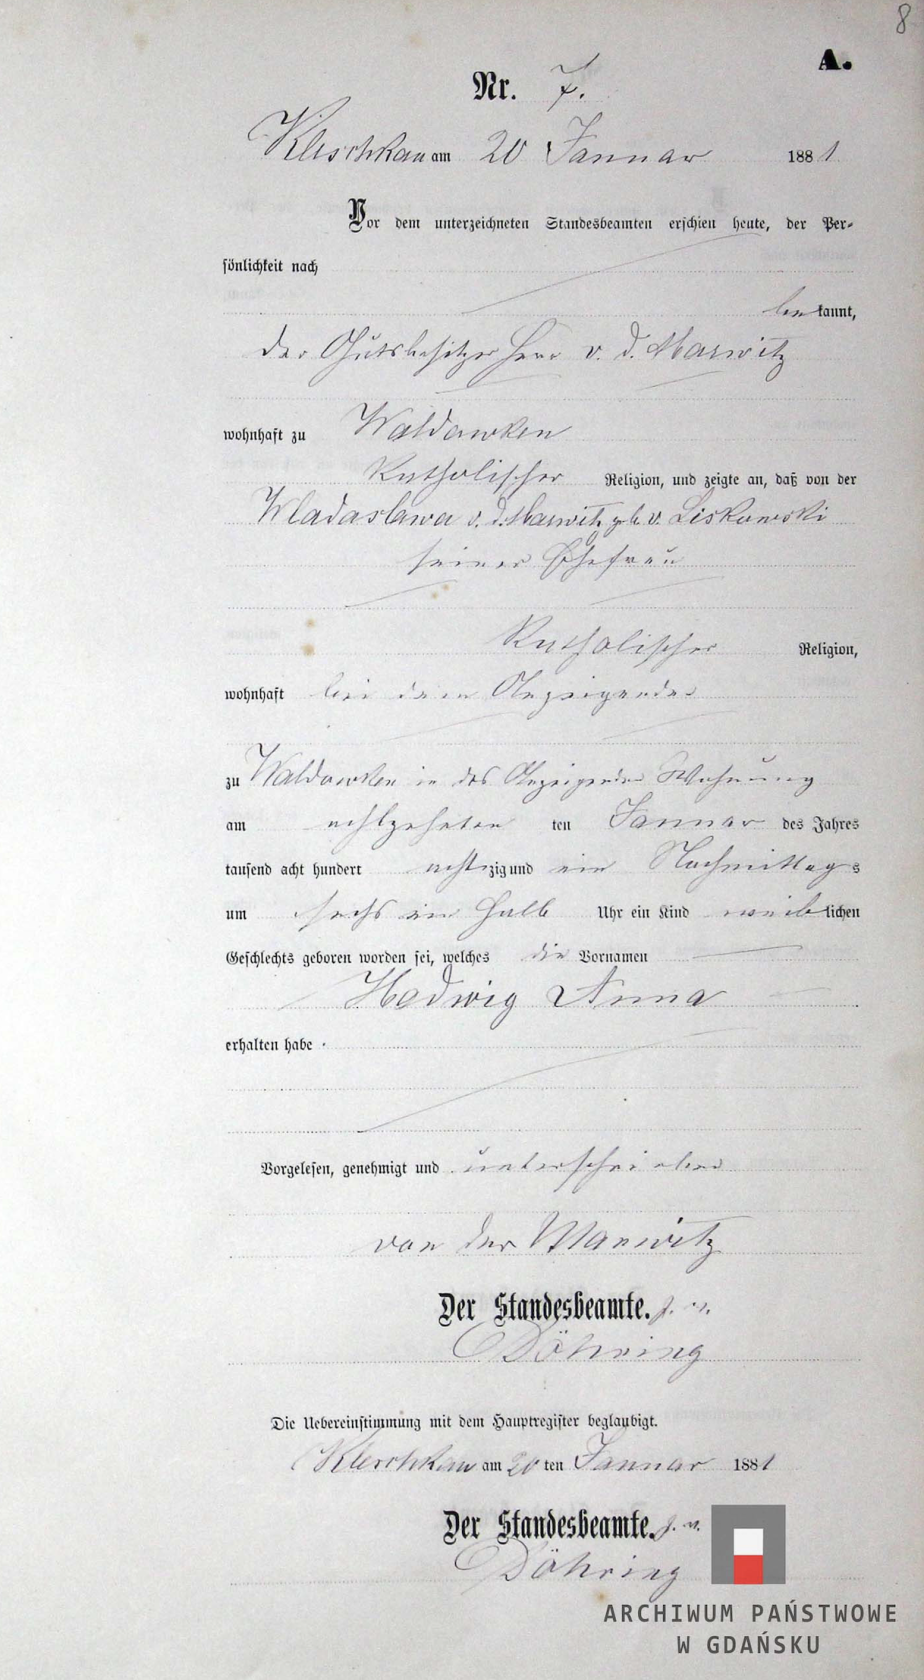 8
A.
Nr. 7.
Kleschkau am 20 Januar 1881
Vor dem unterzeichneten Standesbeamten erschien heute, der Per-
sönlichkeit nach
bekannt,
der Gutsbesitzer Herr v. d. Marwitz
wohnhaft zu Waldowken
Katholischer Religion, und zeigte an, daß von der
Wladaslawa v. d. Marwitz geb. v. Liskowski
seiner Ehefrau
Katholischer Religion,
wohnhaft bei dem Anzeigender
zu Waldowken in des Anzeigender Wohnung
am achtzehnten ten Januar des Jahres
tausend acht hundert achtzig und ein Nachmittags
um sechs ein halb Uhr ein Kind weiblichen
Geschlechts geboren worden sei, welches die Vornamen
Hedwig Anna
erhalten habe.
Vorgelesen, genehmigt und unterschrieben
von der Marwitz
Der Standesbeamte.
Döhring
Die Uebereinstimmung mit dem Hauptregister beglaubigt.
Kleschkau am 20 ten Januar 1881
Der Standesbeamte.
Döhring
ARCHIWUM PAŃSTWOWE
W GDAŃSKU